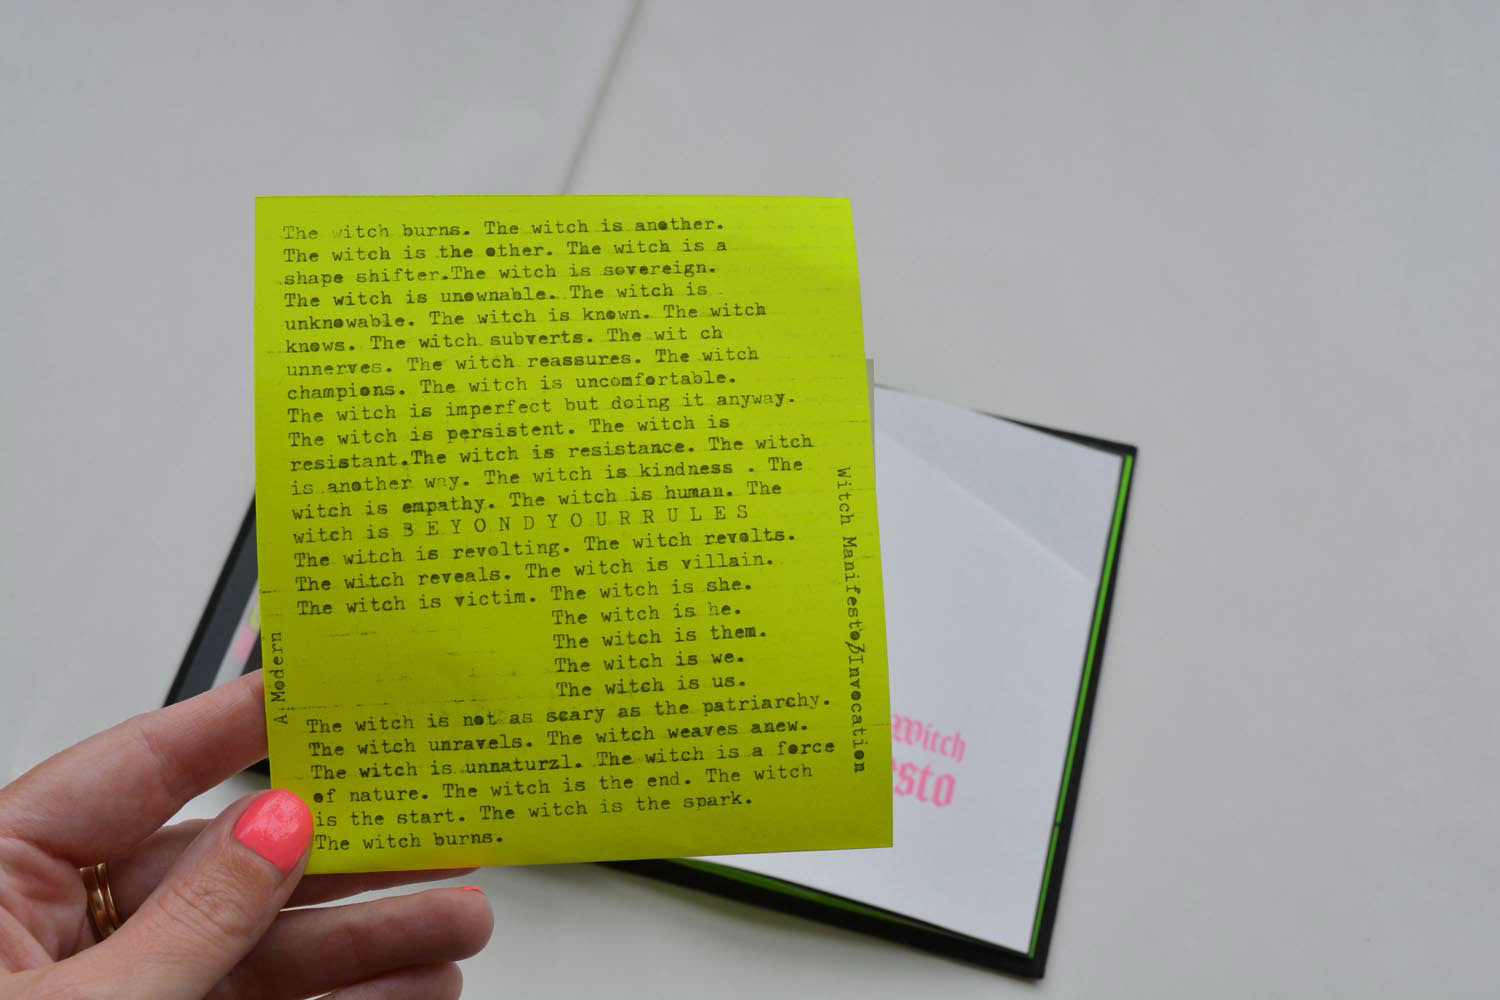 The witch burns. The witch is another.
The witch is the other. The witch is a
shape shifter.The witch is sovereign.
The witch is unownable. The witch is
unknowable. The witch is known. The witch
knows. The witch subverts. The wit ch
unnerves. The witch reassures. The witch
champions. The witch is uncomfortable.
The witch is imperfect but doing it anyway.
The witch is persistent. The witch is
resistant.The witch is resistance. The witch
is another way. The witch is kindness . The
witch is empathy. The witch is human. The
witch is B E Y O N D Y O U R R U L E S
The witch is revolting. The witch revolts.
The witch reveals. The witch is villain.
The witch is victim. The witch is she.
The witch is he.
The witch is them.
The witch is we.
The witch is us.
The witch is not as scary as the patriarchy.
The witch unravels. The witch weaves anew.
The witch is unnaturzl. The witch is a force
of nature. The witch is the end. The witch
is the start. The witch is the spark.
The witch burns.
A Modern
Witch Manifesto/Invocation
Witch
esto